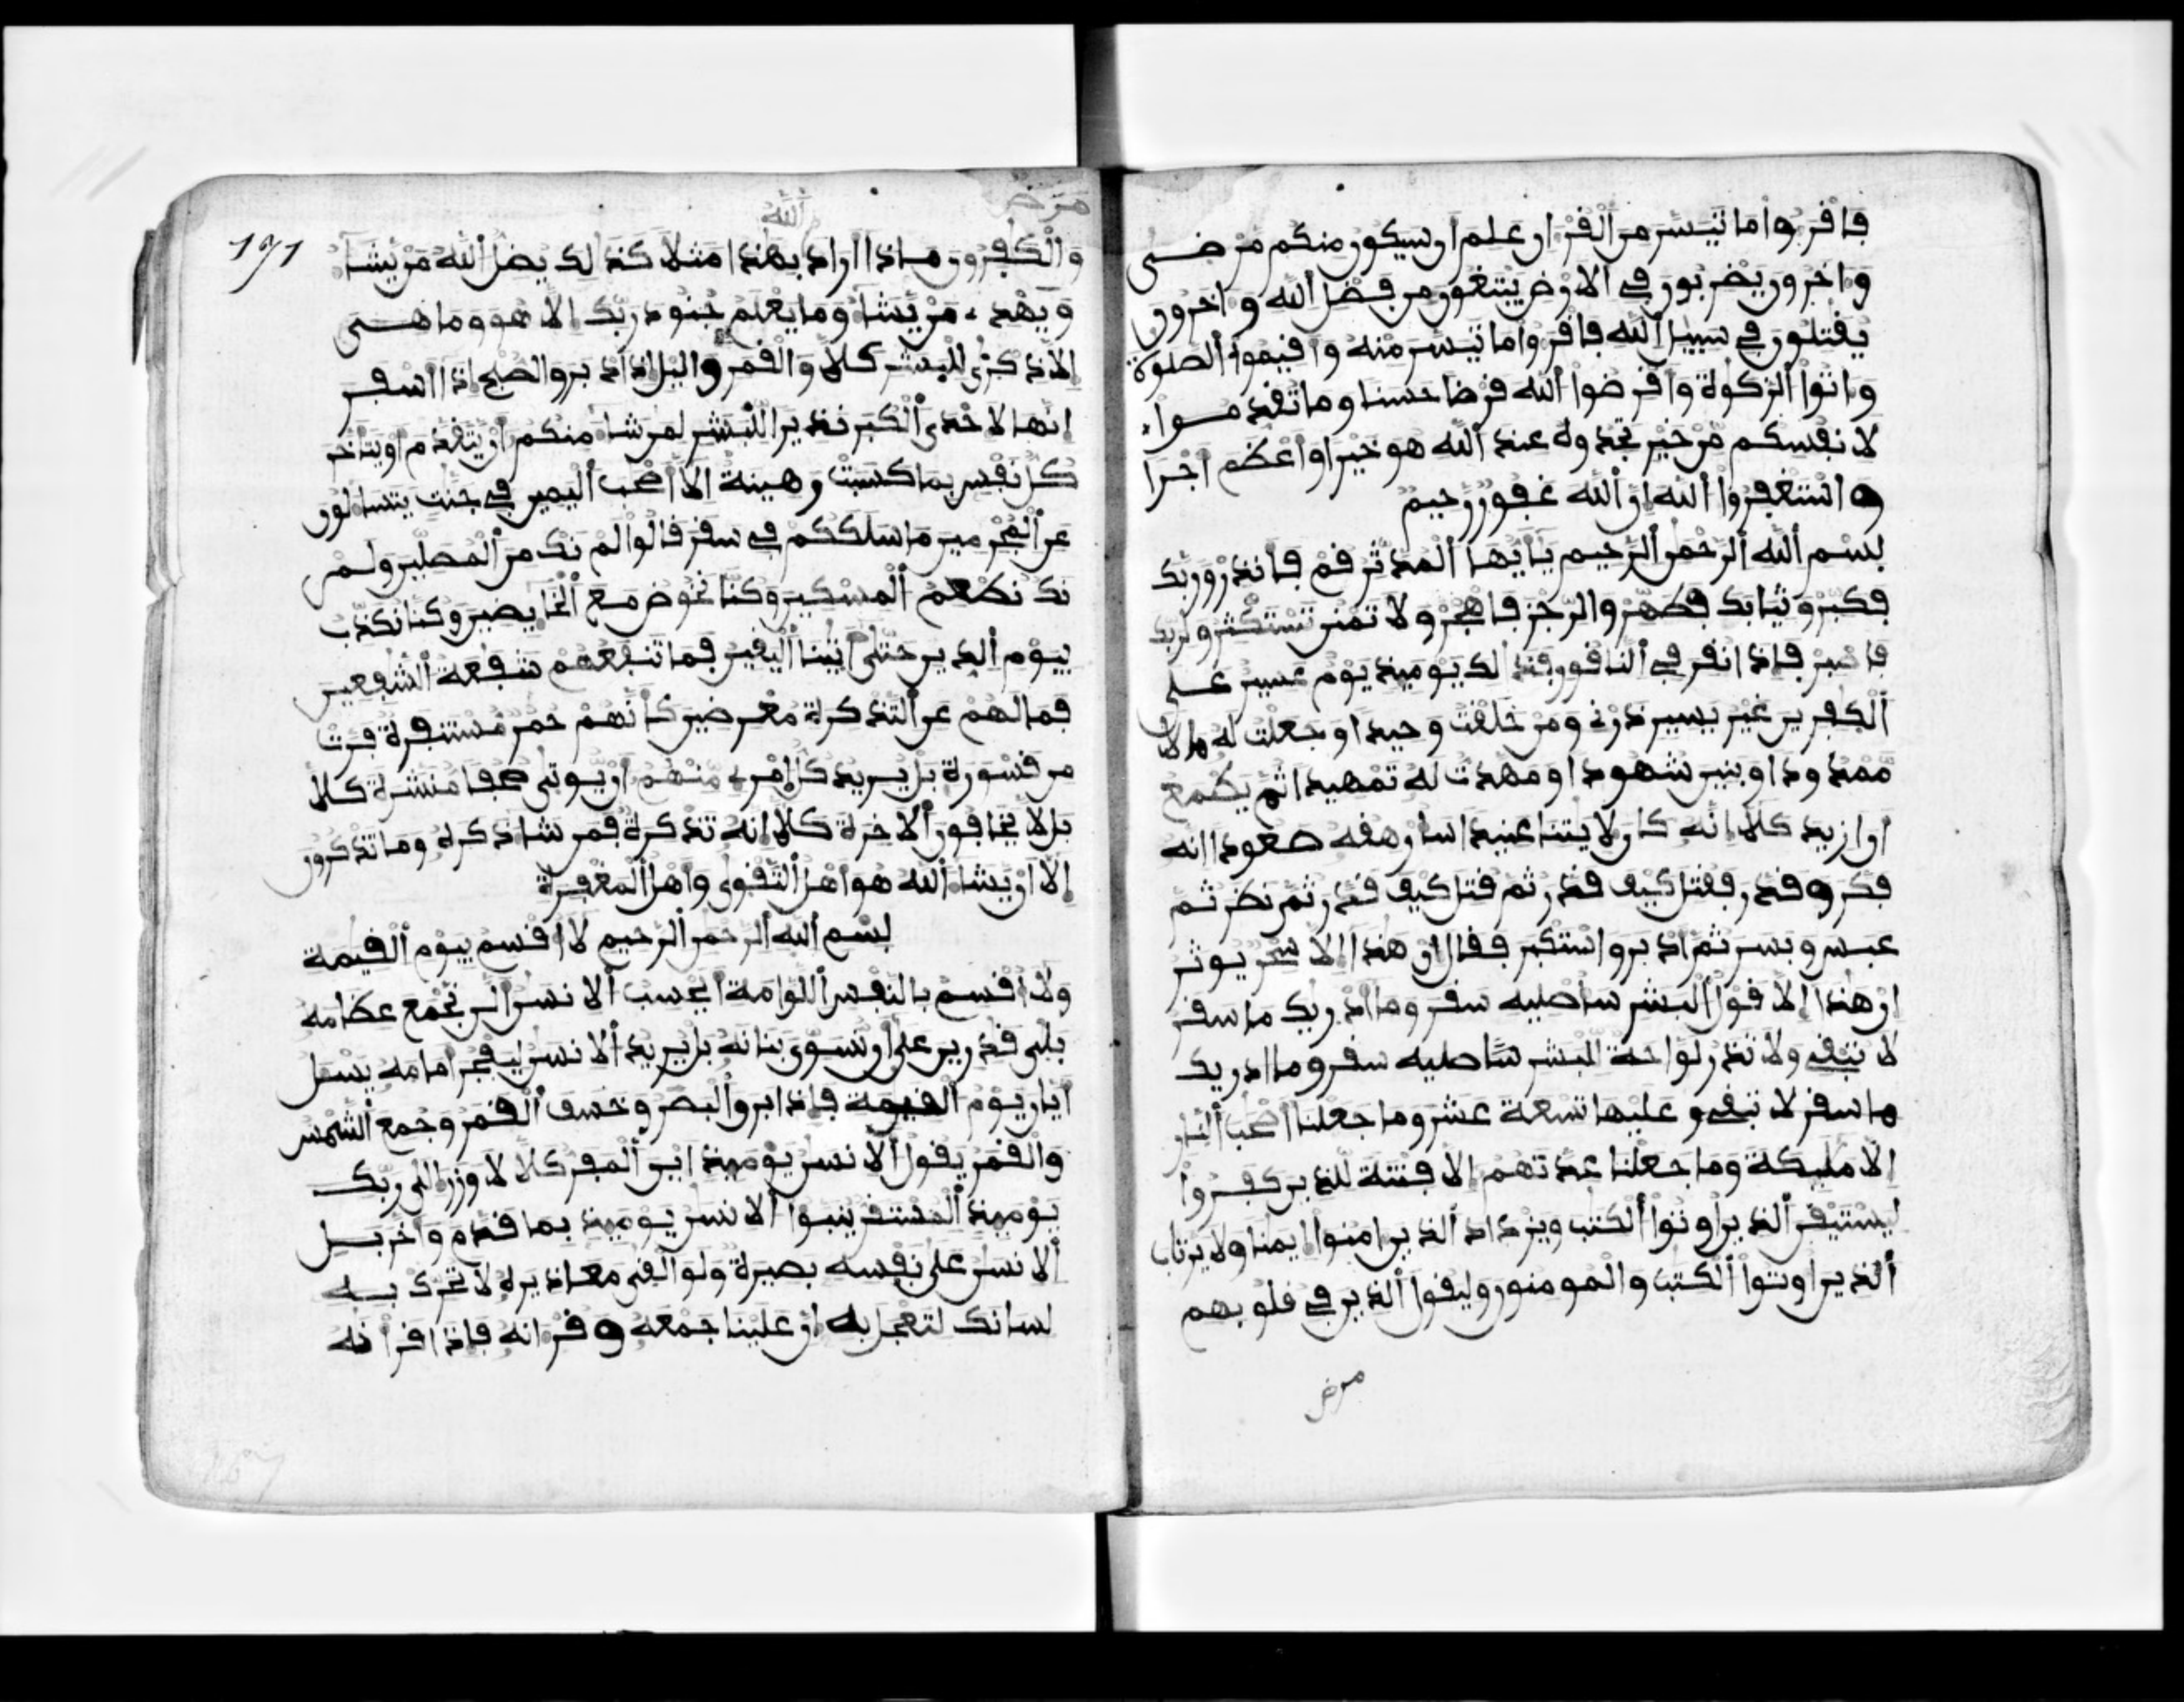 فاقروا ما تيسر من القران علم ان سيكون منكم مرضى
واخرون يضربون في الارض يبتغون من فضل الله واخرون
يقتلون في سبيل الله فاقروا ما تيسر منه واقيموا الصلوة
واتوا الزكوة واقرضوا الله قرضا حسنا وما تقدموا
لانفسكم من خير تجدوه عند الله هو خيرا واعظم اجرا
واستغفروا الله ان الله غفور رحيم
بسم الله الرحمن الرحيم يايها المدثر قم فانذر وربك
فكبر وثيابك فطهر والرجز فاهجر ولا تمنن تستكثر ولربك
فاصبر فاذا نقر في الناقور فذلك يوميذ يوم عسير على
الكفرين غير يسير ذرني ومن خلقت وحيدا وجعلت له مالا
ممدودا وبنين شهودا ومهدت له تمهيدا ثم يطمع
ان ازيد كلا انه كان لايتنا عنيدا سارهفه صعودا انه
فكر وقدر فقتل كيف قدر ثم قتل كيف قدر ثم نظر ثم
عبس وبسر ثم ادبر واستكبر فقال ان هذا الا سحر يوثر
ان هذا الا قول البشر ساصليه سقر وما ادريك ما سقر
لا تبقى ولا تذر لواحة للبشر ساصليه سقر وما ادريك
ما سقر لا تبقى و عليها تسعة عشر وما جعلنا اصحب النار
الا مليكة وما جعلنا عدتهم الا فتنة للذين كفروا
ليستيقن الذين اوتوا الكتب ويزداد الذين امنوا ايمنا ولا يرتاب
الذين اوتوا الكتب والمومنون وليقول الذين في قلوبهم
مرض
مرض
الله
١٩١
والكفرون ماذا اراد بهذا مثلا كذلك يضل الله من يشا
ويهدي من يشا وما يعلم جنود ربك الا هو وما هي
الا ذكرى للبشر كلا والقمر واليل اذ ادبر والصبح اذا اسفر
انها لاحدى الكبر نذيرا للبشر لمن شا منكم ان يتقدم او يتاخر
كل نفس بما كسبت رهينة الا اصحب اليمين في جنت يتسالون
عن المجرمين ما سلككم في سقر قالوا لم نك من المصلين ولم
نك نطعم المسكين وكنا نخوض مع الخايضين وكنا نكذب
بيوم الدين حتى اتينا اليقين فما تنفعهم شفعة الشفعين
فما لهم عن التذكرة معرضين كانهم حمر مستنفرة فرت
من قسورة بل يريد كل امرى منهم ان يوتى صحفا منشرة كلا
بل لا يخافون الاخرة كلا انه تذكرة فمن شا ذكره وما تذكرون
الا ان يشا الله هو اهل التقوى واهل المغفرة
بسم الله الرحمن الرحيم لا اقسم بيوم القيمة
ولا اقسم بالنفس اللوامة ايحسب الانسن الن نجمع عظامه
بلى قدرين على ان نسوي بنانه بل يريد الانسن ليفجر امامه يسل
ايان يوم القيمة فاذا برق البصر وخسف القمر وجمع الشمس
والقمر يقول الانسن يوميذ اين المفر كلا لا وزر الى ربك
يوميذ المستقر ينبوا الانسن يوميذ بما قدم واخر بل
الانسن على نفسه بصيرة ولو القى معاذيره لا تحرك به
لسانك لتعجل به ان علينا جمعه وقرانه فاذا قرانه